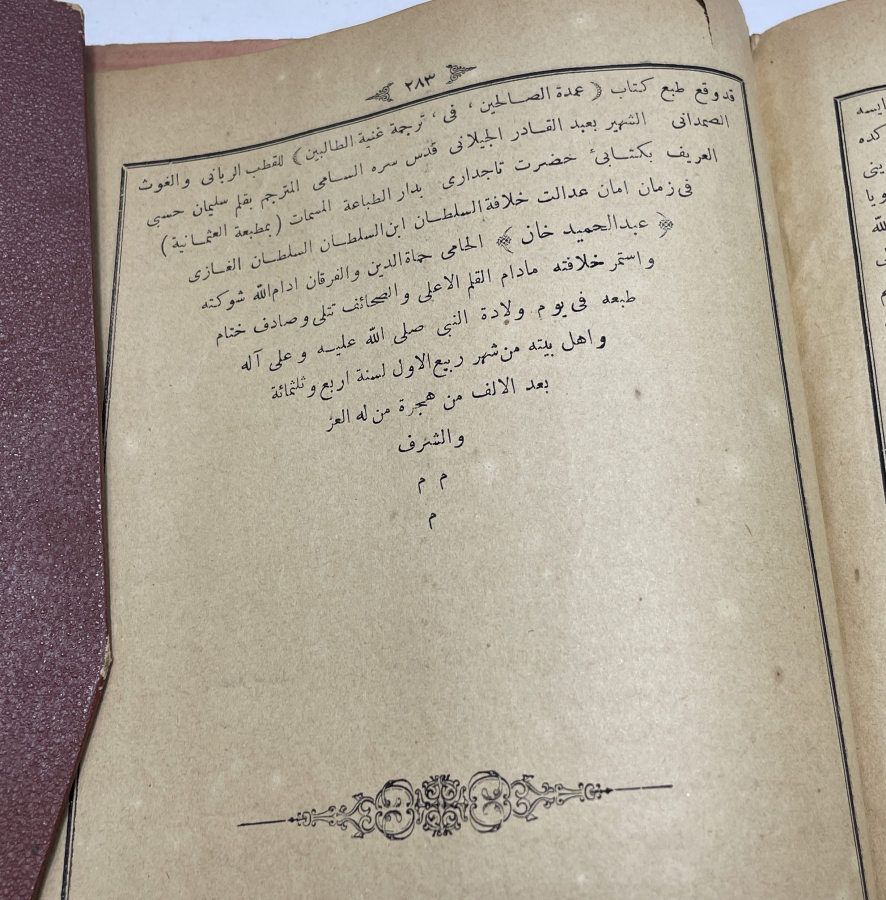 ٢٨٣
قد وقع طبع كتاب ( عمدة الصالحين ، فى ، ترجمة غنية الطالبين ) للقطب الربانى والغوث
الصمدانى الشهير بعبد القادر الجيلانى قدس سره السامى المترجم بقلم سليمان حسبى
العريف بكتابئ حضرت تاجدارى بدار الطباعة المسمات ( بمطبعة العثمانية )
فى زمان امان عدالت خلافة السلطان ابن السلطان السلطان الغازى
﴿ عبد الحميد خان ﴾ الحامى حماة الدين والفرقان ادام الله شوكته
واستمر خلافته مادام القلم الاعلى والصحائف تتلى وصادف ختام
طبعه فى يوم ولادة النبى صلى الله عليه وعلى آله
واهل بيته من شهر ربيع الاول لسنة اربع وثلثمائة
بعد الالف من هجرة من له العز
والشرف
م م
م
ايسه
كده
ينى
ويا
الله